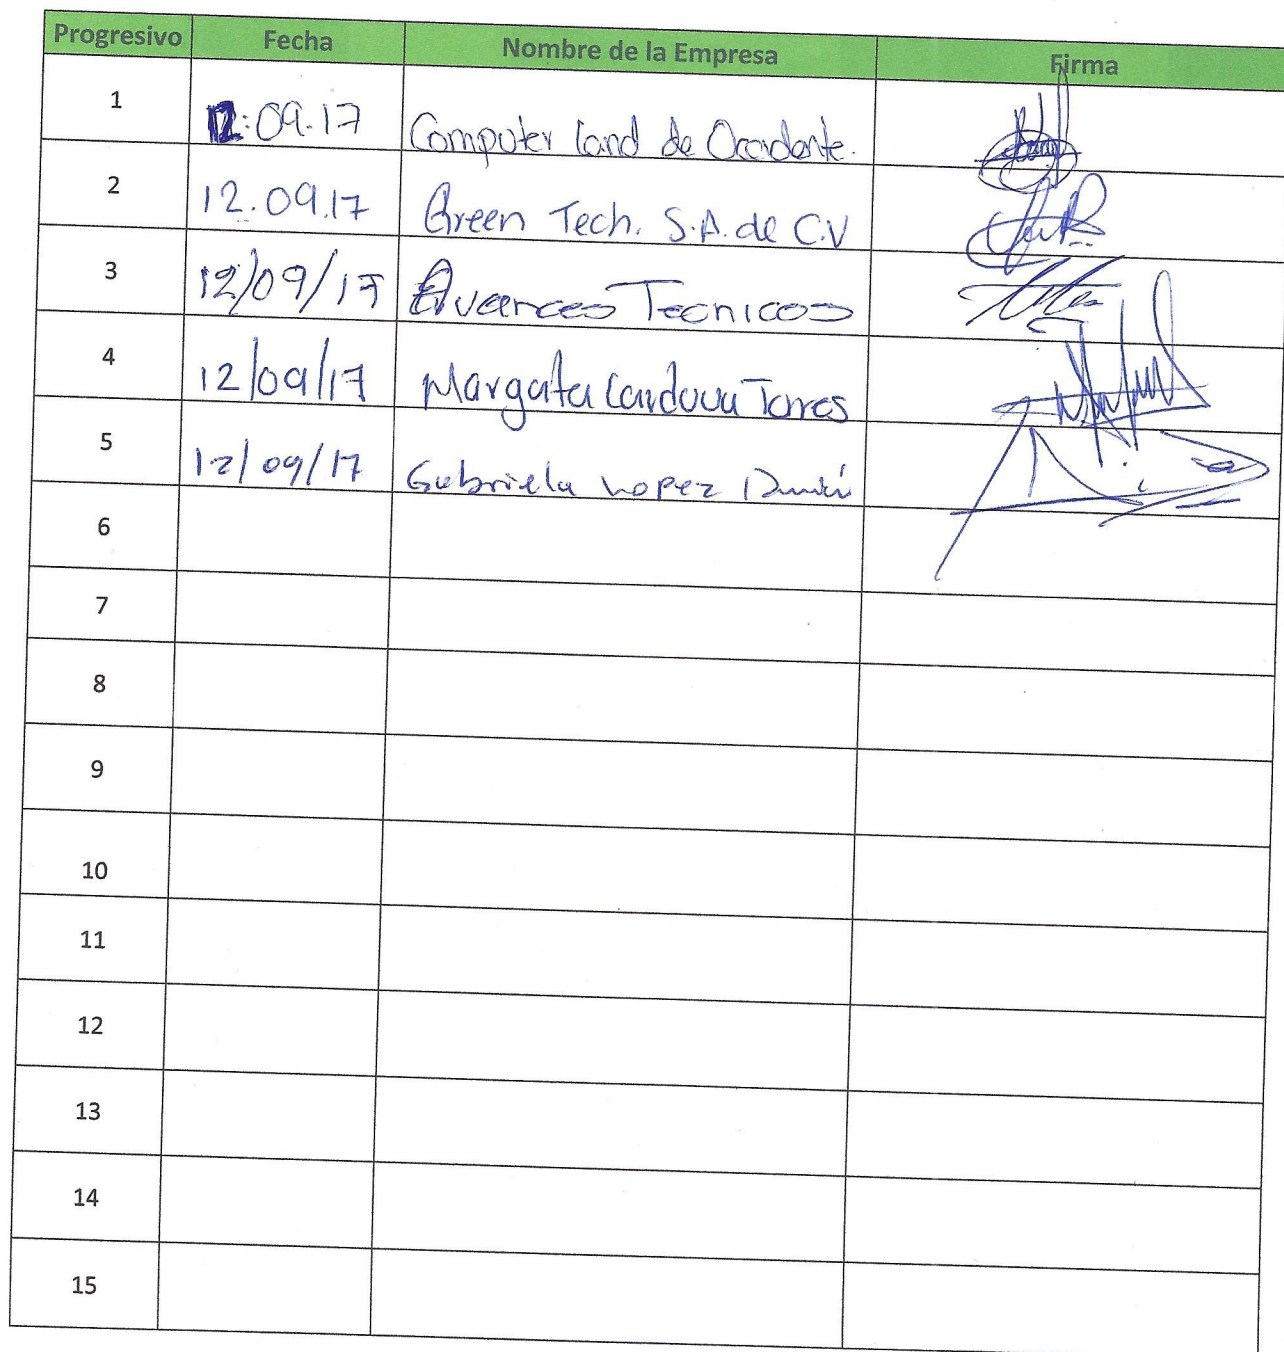 Progresivo Fecha Nombre de la Empresa Firma
1 12:09.17 Computer Land de Occidente.
2 12.09.17 Green Tech. S.A. de C.V
3 12/09/17 Avances Tecnicos
4 12/09/17 Margarita Cordova Torres
5 12/09/17 Gabriela Lopez
6
7
8
9
10
11
12
13
14
15